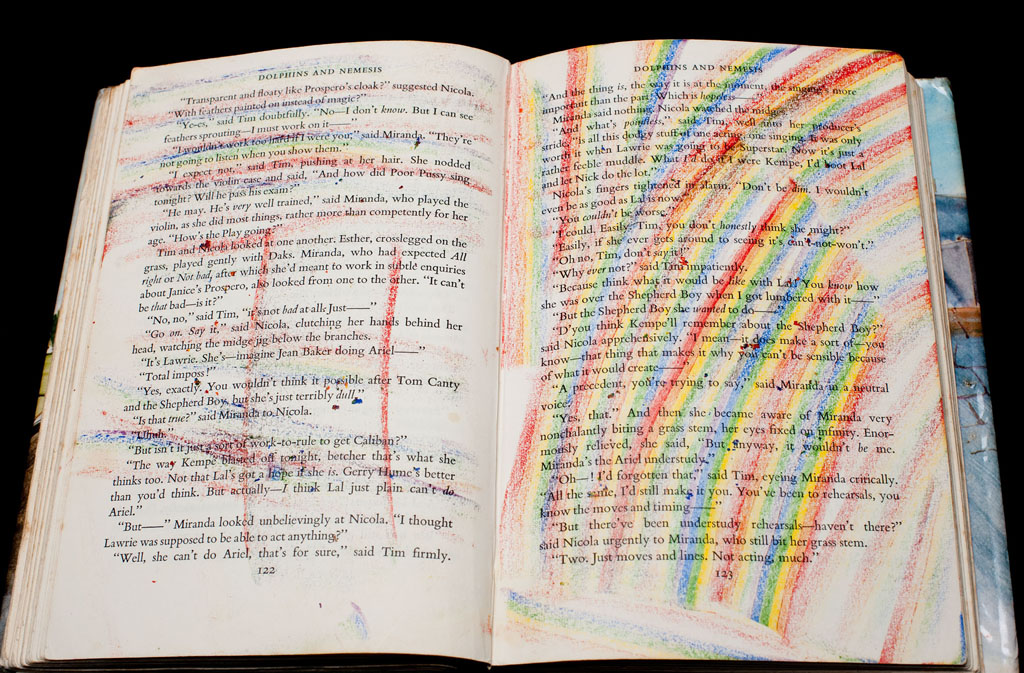 DOLPHINS AND NEMESIS
"Transparent and floaty like Prospero's cloak?" suggested Nicola.
"With feathers painted on instead of magic?"
"Ye-es," said Tim doubtfully. "No—I don't know. But I can see
feathers sprouting—I must work on it——"
"I wouldn't work too hard if I were you," said Miranda. "They're
not going to listen when you show them."
"I expect not," said Tim, pushing at her hair. She nodded
towards the violin case and said, "And how did Poor Pussy sing
tonight? Will he pass his exam?"
"He may. He's very well trained," said Miranda, who played the
violin, as she did most things, rather more than competently for her
age. "How's the Play going?"
Tim and Nicola looked at one another. Esther, crosslegged on the
grass, played gently with Daks. Miranda, who had expected All
right or Not bad, after which she'd meant to work in subtle enquiries
about Janice's Prospero, also looked from one to the other. "It can't
be that bad—is it?"
"No, no," said Tim, "it's not bad at all. Just——"
"Go on. Say it," said Nicola, clutching her hands behind her
head, watching the midge jig below the branches.
"It's Lawrie. She's—imagine Jean Baker doing Ariel——"
"Total imposs!"
"Yes, exactly. You wouldn't think it possible after Tom Canty
and the Shepherd Boy, but she's just terribly dull."
"Is that true?" said Miranda to Nicola.
"Uhuh."
"But isn't it just a sort of work-to-rule to get Caliban?"
"The way Kempe blasted off tonight, betcher that's what she
thinks too. Not that Lal's got a hope if she is. Gerry Hume's better
than you'd think. But actually—I think Lal just plain can't do
Ariel."
"But——" Miranda looked unbelievingly at Nicola. "I thought
Lawrie was supposed to be able to act anything?"
"Well, she can't do Ariel, that's for sure," said Tim firmly.
122
DOLPHINS AND NEMESIS
"And the thing is, the way it is at the moment, the singing's more
important than the part. Which is hopeless——"
Miranda said nothing. Nicola watched the midges.
"And what's pointless," said Tim, well into her producer's
stride, "is all this dodgy stuff of one acting, one singing. It was only
worth it when Lawrie was going to be Superstar. Now it's just a
rather feeble muddle. What I'd do, if I were Kempe, I'd boot Lal
and let Nick do the lot."
Nicola's fingers tightened in alarm. "Don't be dim. I wouldn't
even be as good as Lal is now."
"You couldn't be worse."
"I could. Easily. Tim, you don't honestly think she might?"
"Easily, if she ever gets around to seeing it's can't-not-won't."
"Oh no, Tim, don't say it!"
"Why ever not?" said Tim impatiently.
"Because think what it would be like with Lal! You know how
she was over the Shepherd Boy when I got lumbered with it——"
"But the Shepherd Boy she wanted to do——"
"D'you think Kempe'll remember about the Shepherd Boy?"
said Nicola apprehensively. "I mean—it does make a sort of—you
know—that thing that makes it why you can't be sensible because
of what it would create——"
"A precedent, you're trying to say," said Miranda in a neutral
voice.
"Yes, that." And then she became aware of Miranda very
nonchalantly biting a grass stem, her eyes fixed on infinity. Enor-
mously relieved, she said, "But anyway, it wouldn't be me.
Miranda's the Ariel understudy."
"Oh—! I'd forgotten that," said Tim, eyeing Miranda critically.
"All the same, I'd still make it you. You've been to rehearsals, you
know the moves and timing——"
"But there've been understudy rehearsals—haven't there?"
said Nicola urgently to Miranda, who still bit her grass stem.
"Two. Just moves and lines. Not acting, much."
123